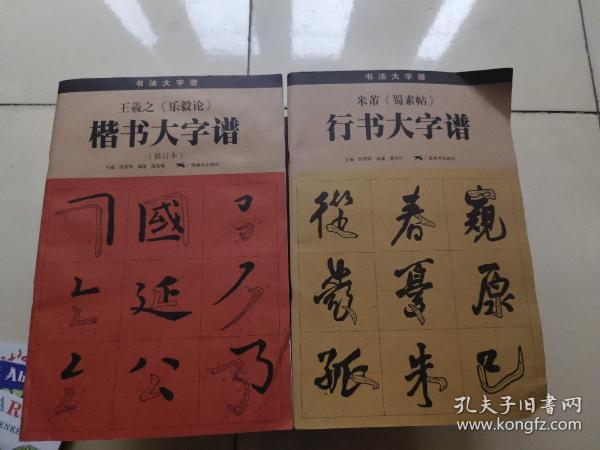 书法大字谱
王羲之《乐毅论》
楷书大字谱
(修订本)
國
延
公
乃
书法大字谱
米芾《蜀素帖》
行书大字谱
從 春 窺
憂 原
孤 朱 已
Ab
AR
孔夫子旧书网
www.kongfz.com